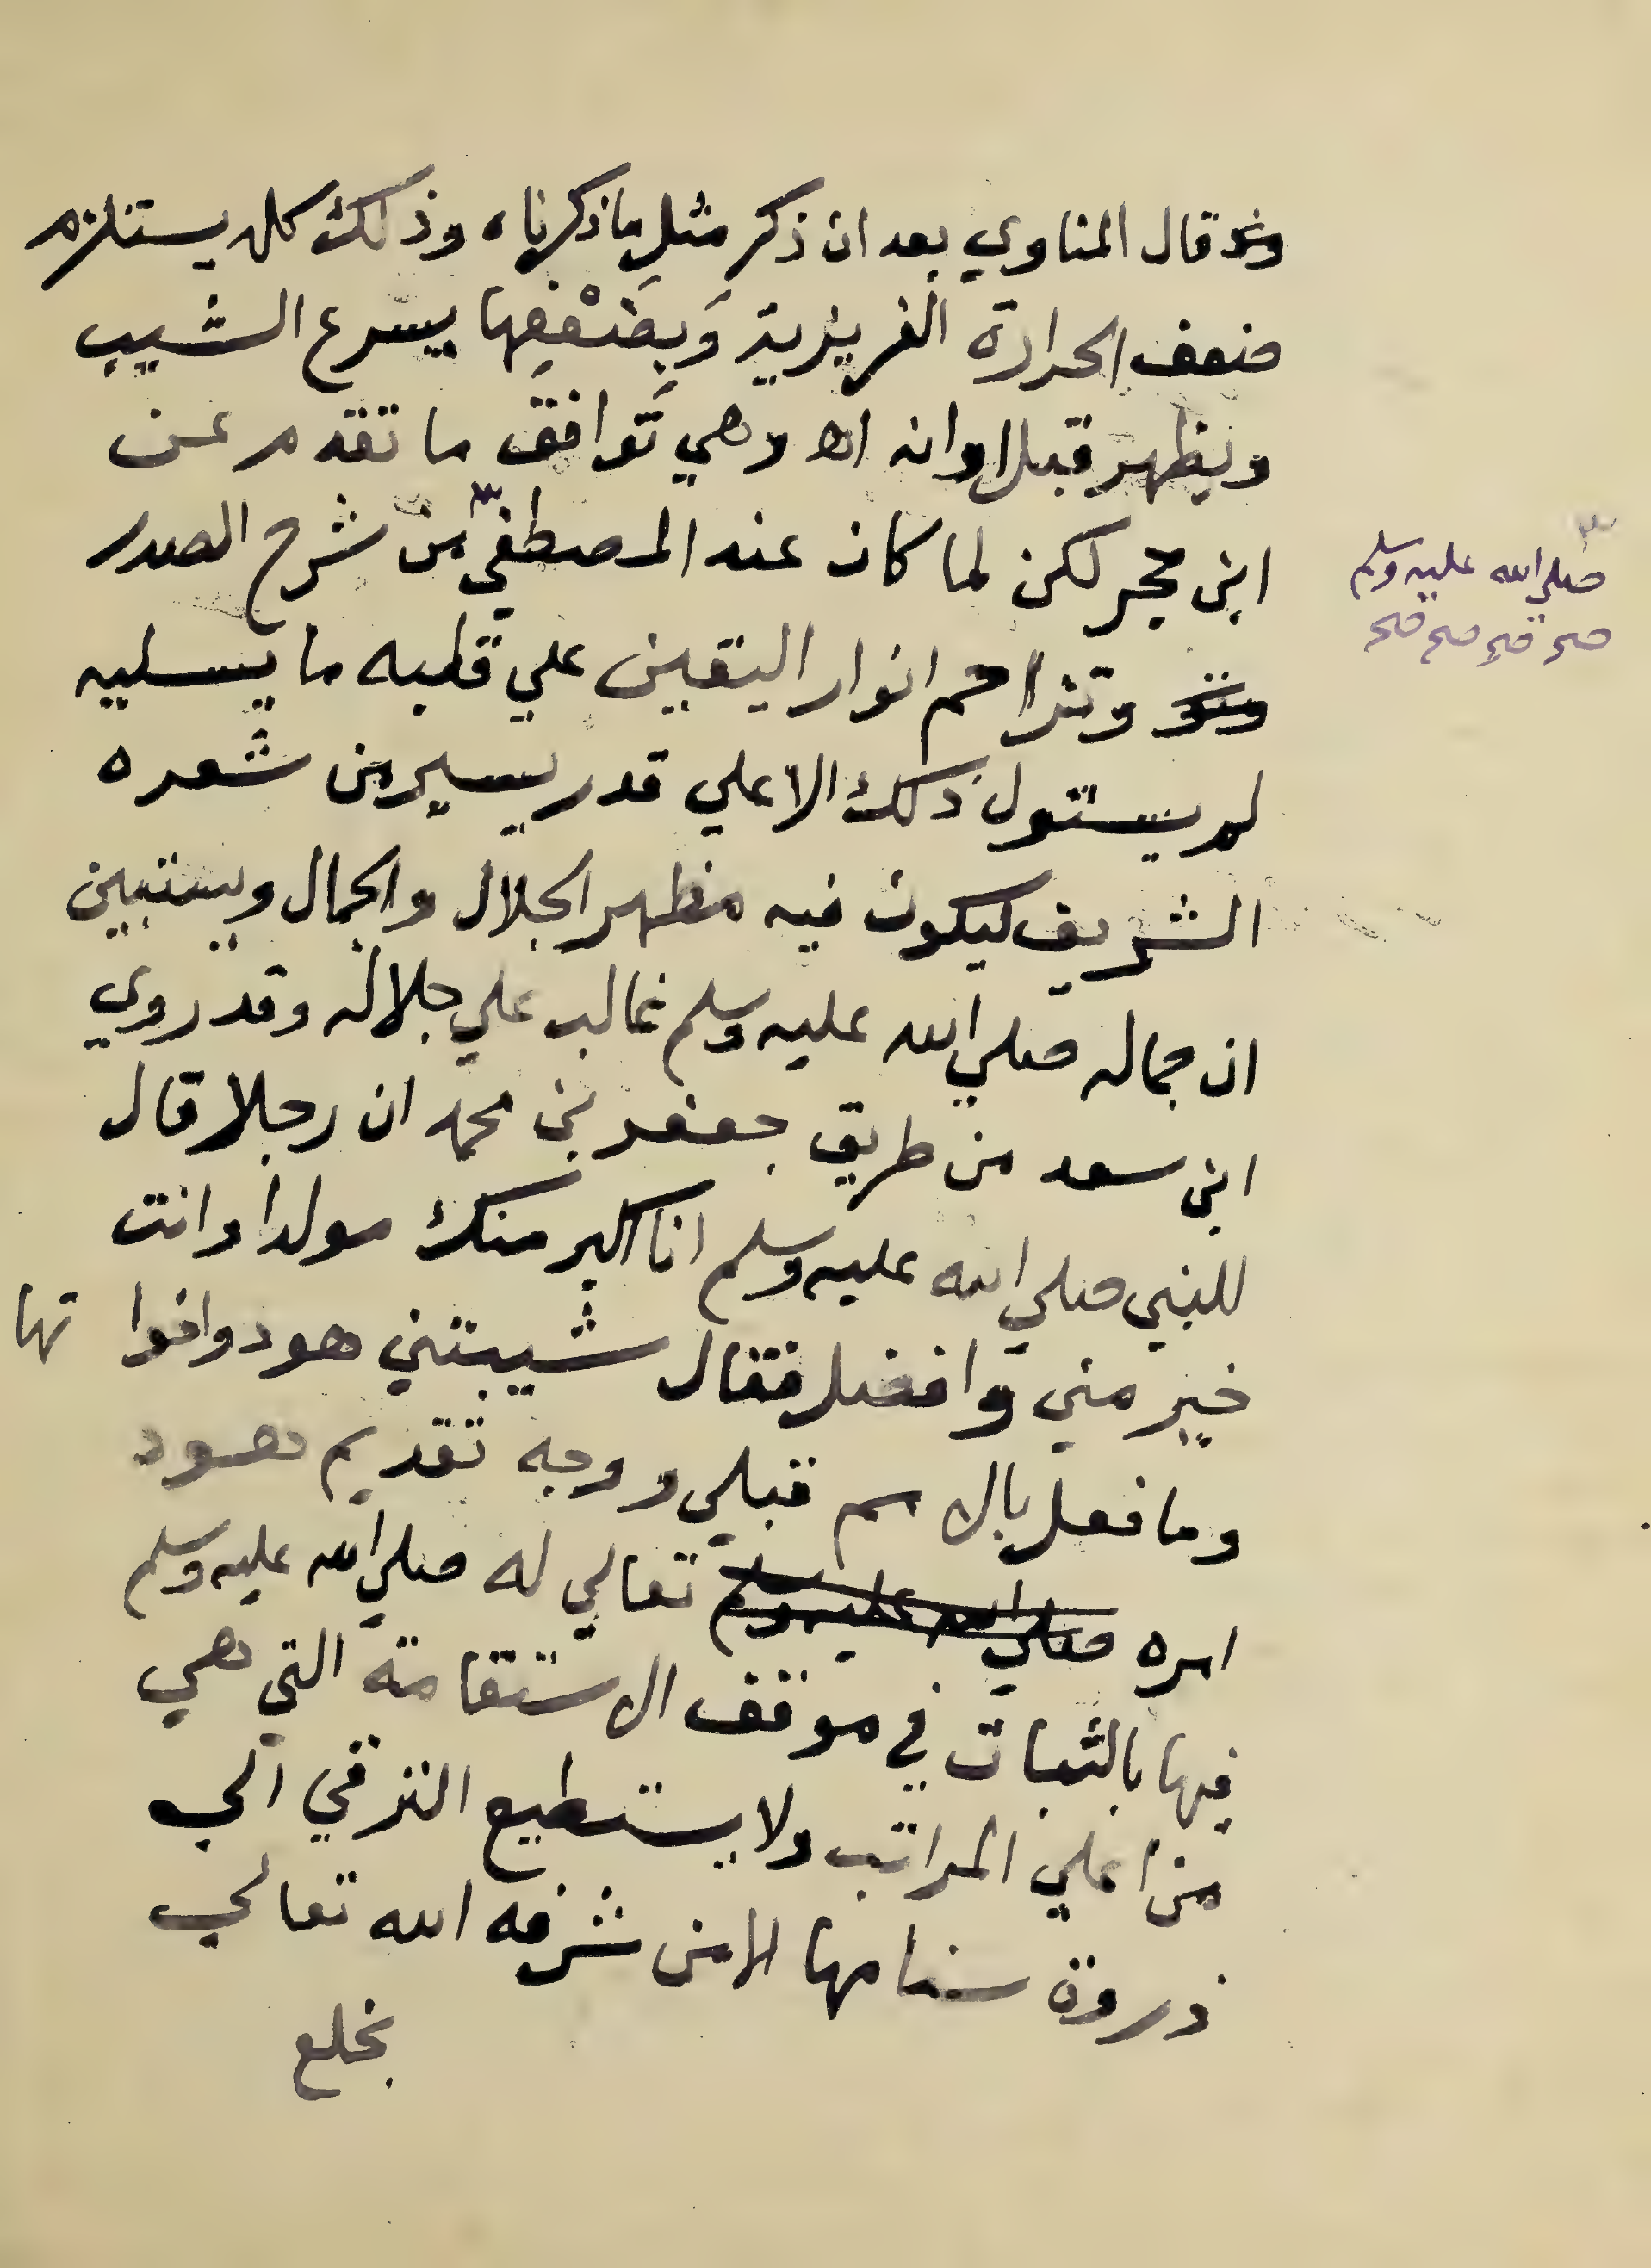 وقد قال المناوي بعد ان ذكر مثل ما ذكرناه وذلك كله يستلزم
ضعف الحرارة الغريزية وَبِضَعْفِها يسرع الشيب
ويظهر قبل اوانه اه وهي تَوافق ما تقدم عن
ابن حجر لكن لما كان عند المصطفي من شرح الصدر
صلي الله عليه وسلم
صح صح صح صح
وتزاحم انوار اليقين علي قلبه ما يسليه
لم يستول ذلك الا علي قدر يسير من شعره
الشريف ليكون فيه مظهر الجلال والجمال ويستبين
ان جماله صلي الله عليه وسلم غالب علي جلاله وقد روي
ابن سعد من طريق جعفر بن محمد ان رجلا قال
للنبي صلي الله عليه وسلم انا اكبر منك مولدا وانت
خير مني وافضل فقال شيبتني هود واخوا تها
وما فعل بالامم قبلي ووجه تقديم هود
امره صلي الله عليه وسلم تعالي له صلي الله عليه وسلم
فيها بالثبات في موقف الاستقامة التي هي
من اعلي المراتب ولا يستطيع الترقي الي
ذروة سنامها الا من شرفه الله تعالي
بخلع